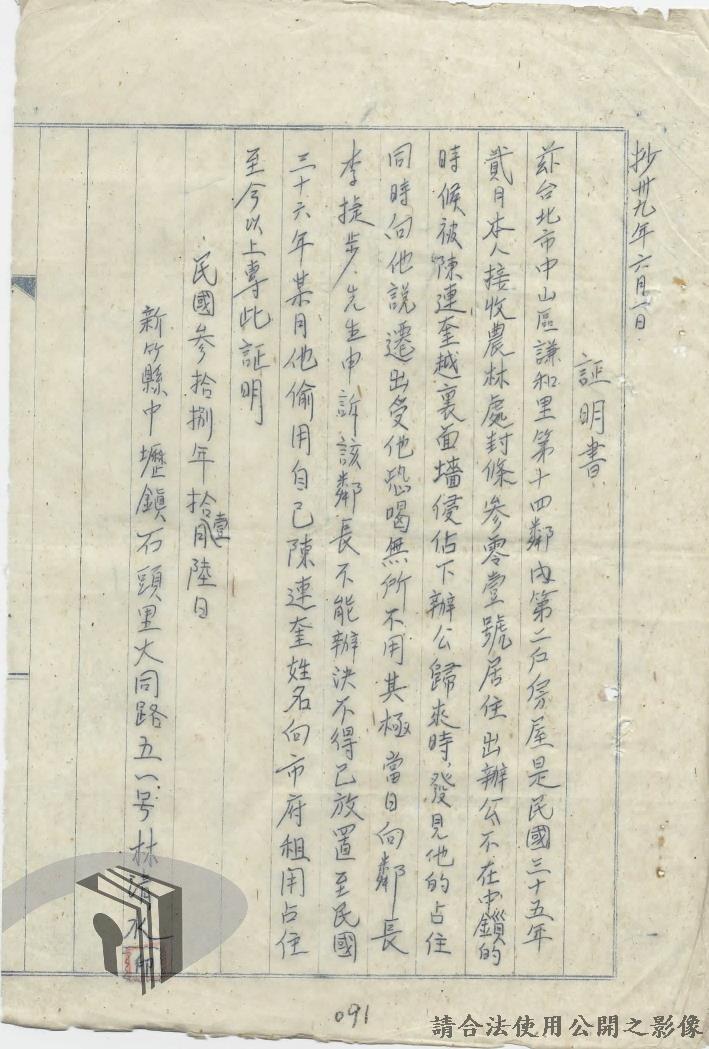 抄卅九年六月一日
証明書
茲台北市中山區謙和里第十四鄰内第二戶房屋是民國三十五年
貳月本人接收農林處封條參零壹號居住出辦公不在中鎖的
時候被陳連奎越裏面墻侵佔下辦公歸來時,發見他的占住
同時向他說遷出受他恐喝無所不用其極當日向鄰長
李捷步先生申訴該鄰長不能辦決不得已放置至民國
三十六年某月他偷用自己陳連奎姓名向市府租用占住
至今以上專此証明
民國參拾捌年拾壹月陸日
新竹縣中壢鎭石頭里大同路五八号林清水
印
091
請合法使用公開之影像